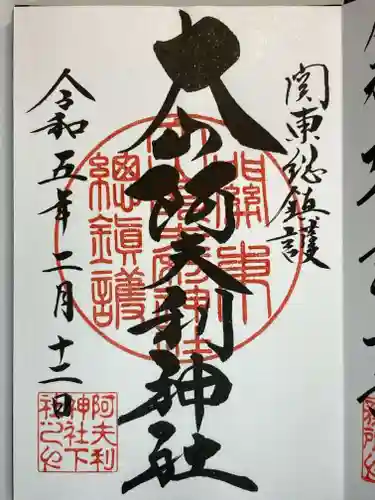 関東総鎮護
大山阿夫利神社
令和五年二月十二日
關東
總鎮護
阿夫利
神社下
社之印